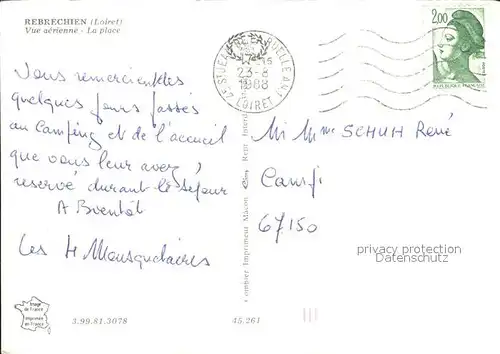 REBRECHIEN (Loiret)
Vue aérienne - La place
2,00
REPUBLIQUE FRANÇAISE
23-8
1988
LOIRET
Vous remercient les
quelques jours passés
au Camping et de l'accueil
que vous leur avez
réservé durant le séjour
A Bientôt
Les 4 Mousquetaires
M Mme SCHUH René
67150
Combier Imprimeur Macon
privacy protection
Datenschutz
Image
de France
Imprimée
en France
3.99.81.3078
45.261